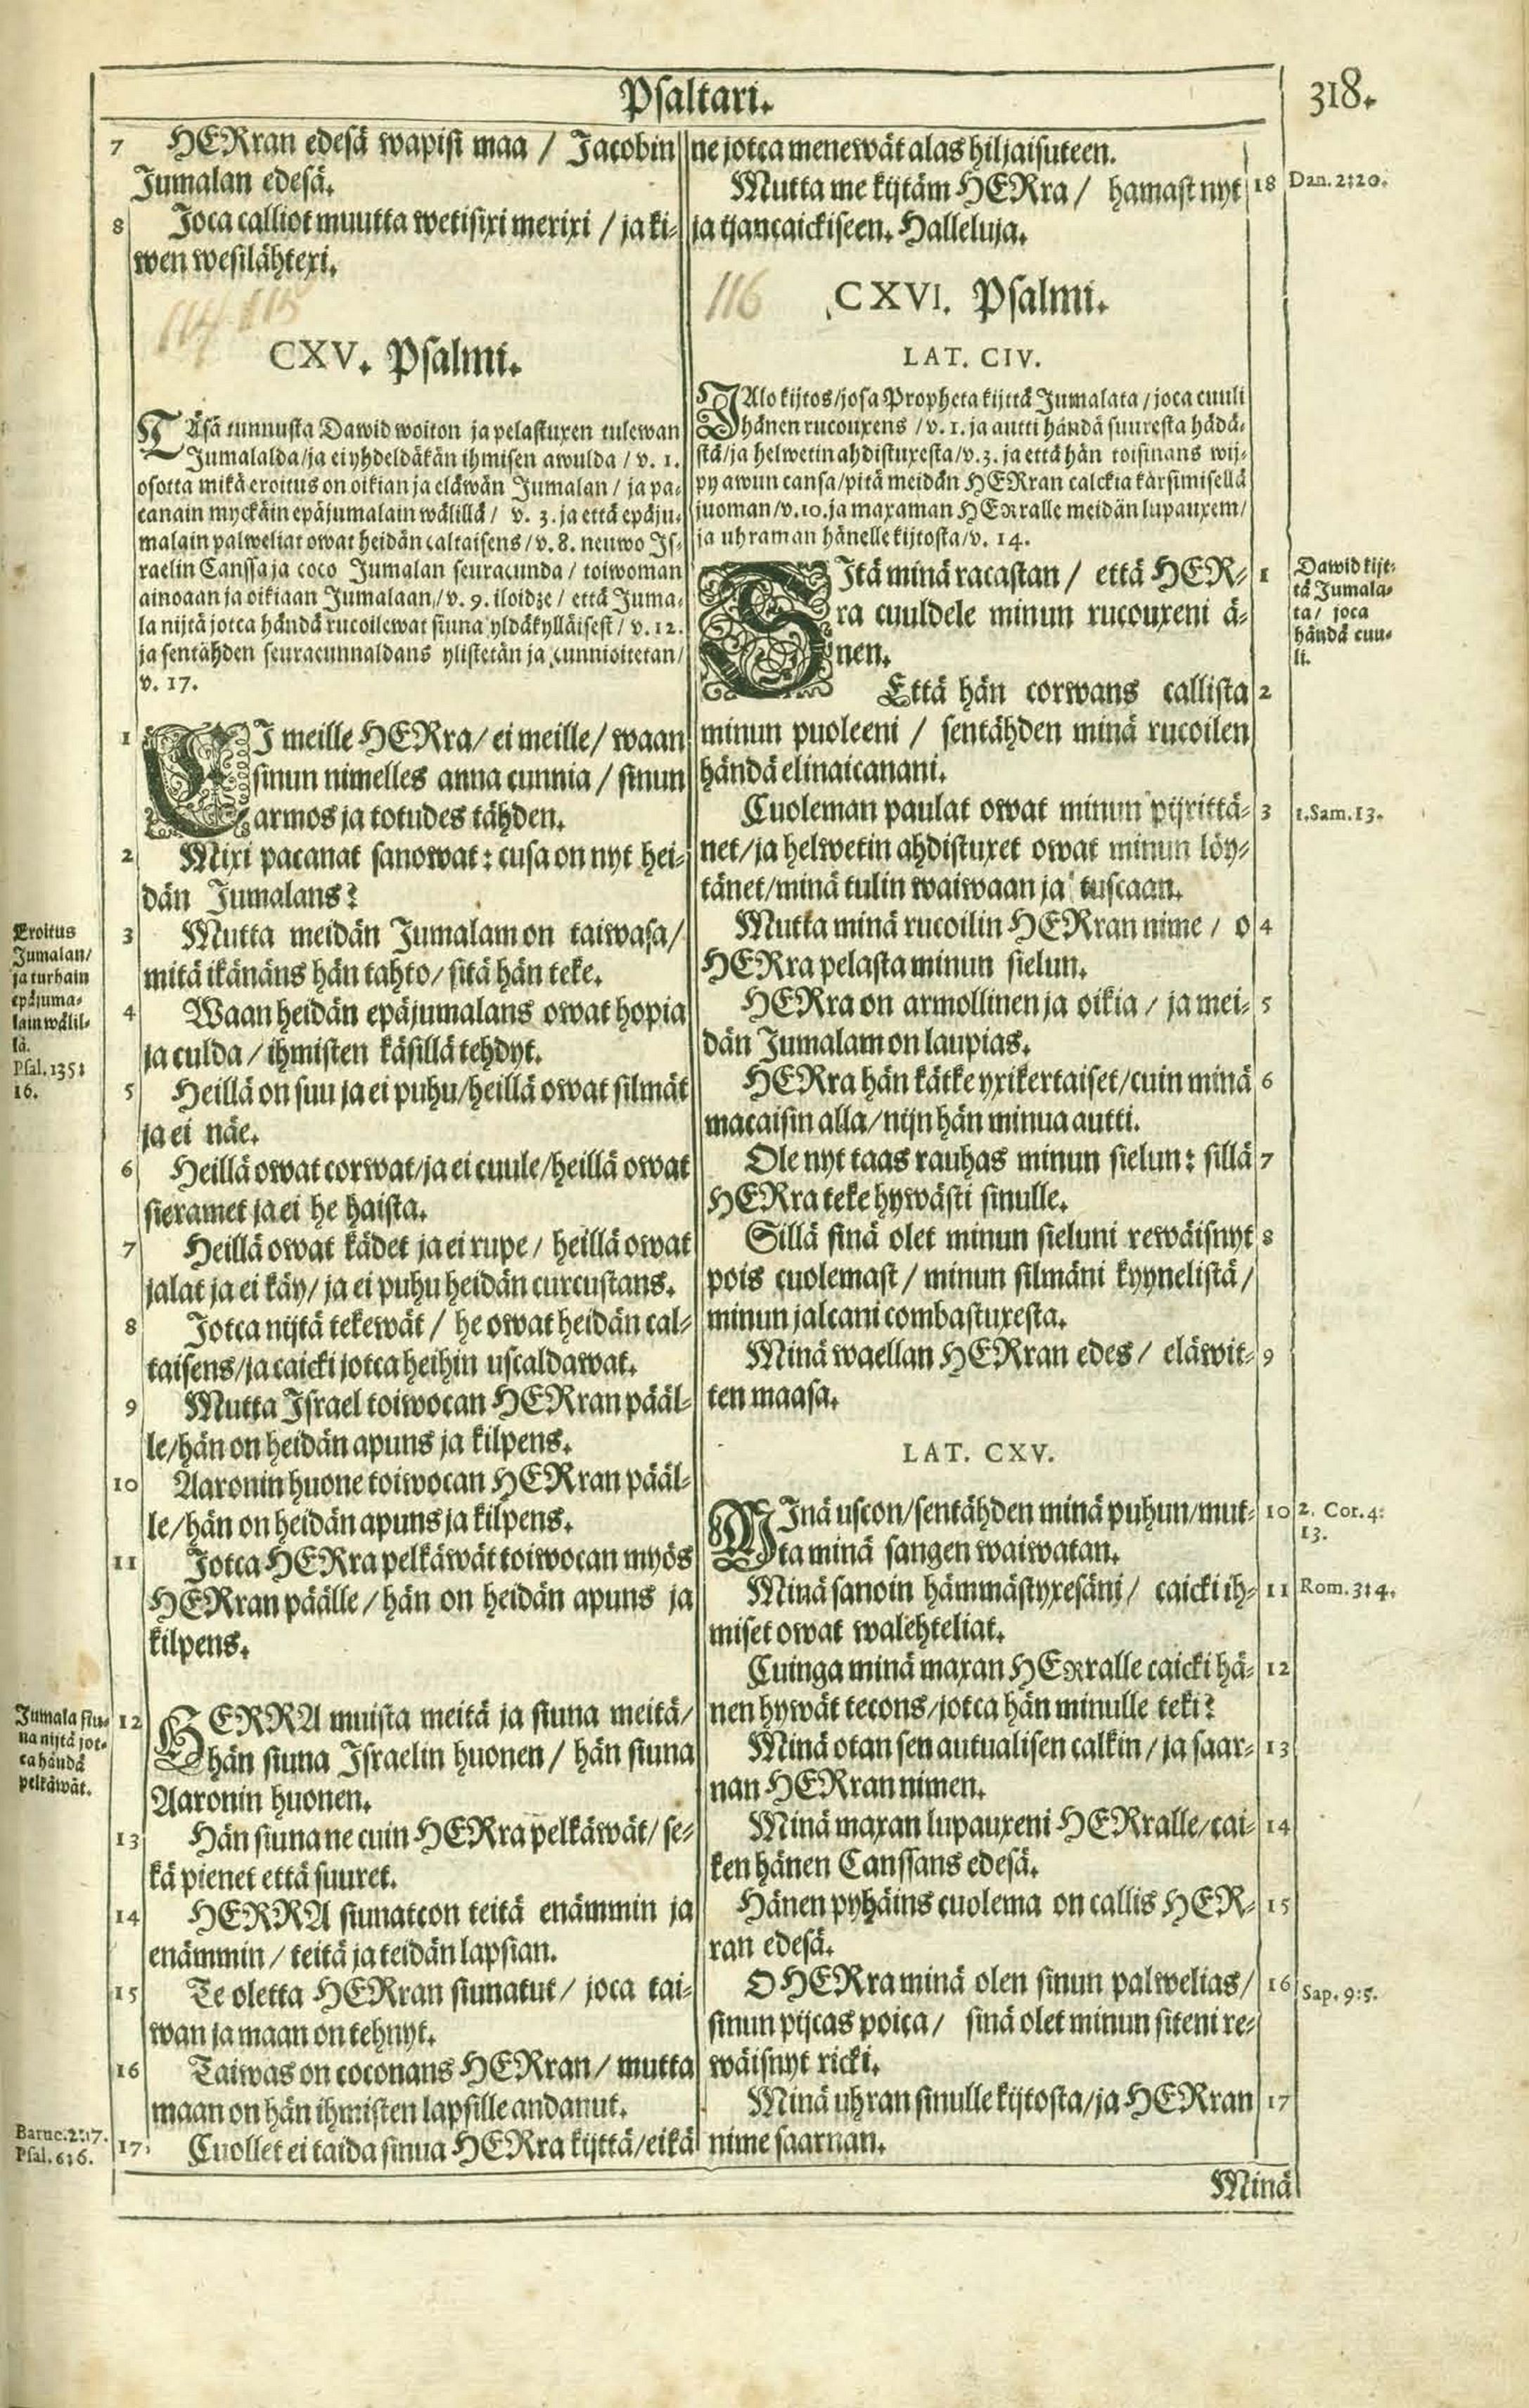 Psaltari.
318.
7 HERran edesä wapisi maa / Jacobin
Jumalan edesä.
8 Joca calliot muutta wetisixi merixi / ja ki-
wen wesilähtexi.
114 115
CXV. Psalmi.
TÄsä tunnusta Dawid woiton ja pelastuxen tulewan
Jumalalda/ja ei yhdeldäkän ihmisen awulda / v. 1.
osotta mikä eroitus on oikian ja eläwän Jumalan / ja pa-
canain myckäin epäjumalain wälillä / v. 3. ja että epäju-
malain palweliat owat heidän caltaisens / v. 8. neuwo Is-
raelin Canssa ja coco Jumalan seuracunda / toiwoman
ainoaan ja oikiaan Jumalaan / v. 9. iloidze / että Juma-
la nijtä jotca händä rucoilewat siuna yldäkylläisest / v. 12.
ja sentähden seuracunnaldans ylistetän ja cunnioitetan /
v. 17.
1 EI meille HERra / ei meille / waan
sinun nimelles anna cunnia / sinun
armos ja totudes tähden.
2 Mixi pacanat sanowat : cusa on nyt hei-
dän Jumalans?
Eroitus
Jumalan /
ja turhain
epäjuma-
lain wälil-
lä.
Psal. 135:
16.
3 Mutta meidän Jumalam on taiwasa /
mitä ikänäns hän tahto / sitä hän teke.
4 Waan heidän epäjumalans owat hopia
ja culda / ihmisten käsillä tehdyt.
5 Heillä on suu ja ei puhu / heillä owat silmät
ja ei näe.
6 Heillä owat corwat / ja ei cuule / heillä owat
sieramet ja ei he haista.
7 Heillä owat kädet ja ei rupe / heillä owat
jalat ja ei käy / ja ei puhu heidän curcustans.
8 Jotca nijtä tekewät / he owat heidän cal-
taisens / ja caicki jotca heihin uscaldawat.
9 Mutta Israel toiwocan HERran pääl-
le / hän on heidän apuns ja kilpens.
10 Aaronin huone toiwocan HERran pääl-
le / hän on heidän apuns ja kilpens.
11 Jotca HERra pelkäwät toiwocan myös
HERran päälle / hän on heidän apuns ja
kilpens.
Jumala siu-
na nijtä jot-
ca händä
pelkäwät.
12 HERRA muista meitä ja siuna meitä /
hän siuna Israelin huonen / hän siuna
Aaronin huonen.
13 Hän siuna ne cuin HERra pelkäwät / se-
kä pienet että suuret.
14 HERRA siunatcon teitä enämmin ja
enämmin / teitä ja teidän lapsian.
15 Te oletta HERran siunatut / joca tai-
wan ja maan on tehnyt.
16 Taiwas on coconans HERran / mutta
maan on hän ihmisten lapsille andanut.
Baruc. 2:17.
Psal. 6:6.
17 Cuollet ei taida sinua HERra kijttä / eikä
ne jotca menewät alas hiljaisuteen.
Mutta me kijtäm HERra / hamast nyt 18 Dan. 2:20.
ja ijancaickiseen. Halleluja.
116
CXVI. Psalmi.
LAT. CIV.
JAlo kijtos / josa Propheta kijttä Jumalata / joca cuuli
hänen rucouxens / v. 1. ja autti händä suuresta hädä-
stä / ja helwetin ahdistuxesta / v. 3. ja että hän toisinans wij-
py awun cansa / pitä meidän HERran calckia kärsimisellä
juoman / v. 10. ja maxaman HERralle meidän lupauxem /
ja uhraman hänelle kijtosta / v. 14.
SItä minä racastan / että HER- 1
ra cuuldele minun rucouxeni ä-
nen.
Dawid kijt-
tä Jumala-
ta / joca
händä cuu-
li.
Että hän corwans callista 2
minun puoleeni / sentähden minä rucoilen
händä elinaicanani.
Cuoleman paulat owat minun pijrittä- 3 1. Sam. 13.
net / ja helwetin ahdistuxet owat minun löy-
tänet / minä tulin waiwaan ja tuscaan.
Mutta minä rucoilin HERran nime / o 4
HERra pelasta minun sielun.
HERra on armollinen ja oikia / ja mei- 5
dän Jumalam on laupias.
HERra hän kätke yxikertaiset / cuin minä 6
macaisin alla / nijn hän minua autti.
Ole nyt taas rauhas minun sielun : sillä 7
HERra teke hywästi sinulle.
Sillä sinä olet minun sieluni rewäisnyt 8
pois cuolemast / minun silmäni kyynelistä /
minun jalcani combastuxesta.
Minä waellan HERran edes / eläwit- 9
ten maasa.
LAT. CXV.
MInä uscon / sentähden minä puhun / mut- 10 2. Cor. 4:
13.
ta minä sangen waiwatan.
Minä sanoin hämmästyxesäni / caicki ih- 11 Rom. 3:4.
miset owat walehteliat.
Cuinga minä maxan HERralle caicki hä- 12
nen hywät tecons / jotca hän minulle teki?
Minä otan sen autualisen calkin / ja saar- 13
nan HERran nimen.
Minä maxan lupauxeni HERralle / cai- 14
ken hänen Canssans edesä.
Hänen pyhäins cuolema on callis HER- 15
ran edesä.
O HERra minä olen sinun palwelias / 16 Sap. 9:5.
sinun pijcas poica / sinä olet minun siteni re-
wäisnyt ricki.
Minä uhran sinulle kijtosta / ja HERran 17
nime saarnan.
Minä